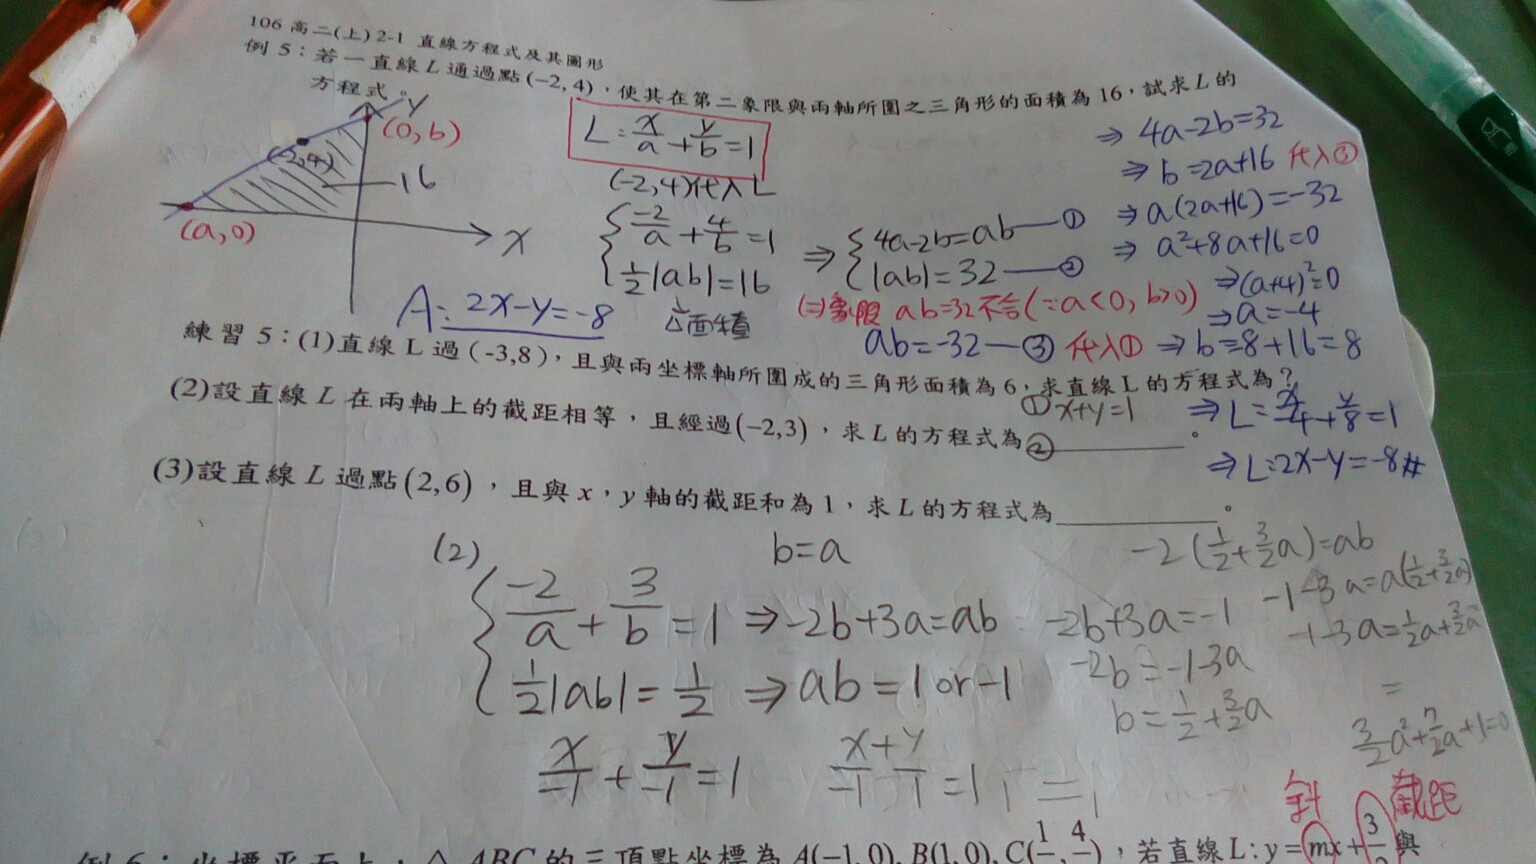 106 高二(上) 2-1 直線方程式及其圖形
例 5：若一直線 L 通過點 (-2, 4)，使其在第二象限與兩軸所圍之三角形的面積為 16，試求 L 的
方程式。
y
(0, b)
(-2,4)
16
(a,0)
x
L: x/a + y/b = 1
(-2,4)代入 L
{ -2/a + 4/b = 1
1/2|ab| = 16
△面積
⇒ { 4a-2b=ab — ①
|ab| = 32 — ②
ab=32不合(∵a<0, b>0)
ab=-32 — ③ 代入①
⇒ 4a-2b=32
⇒ b=2a+16 代入③
⇒ a(2a+16)=-32
⇒ a²+8a+16=0
⇒(a+4)²=0
⇒ a=-4
⇒ b=8+16=8
⇒ L= x/-4 + y/8 = 1
⇒ L:2x-y=-8#
A: 2x-y=-8
練習 5：(1)直線 L 過 (-3,8)，且與兩坐標軸所圍成的三角形面積為 6，求直線 L 的方程式為？
(2)設直線 L 在兩軸上的截距相等，且經過(-2,3)，求 L 的方程式為 ① x+y=1 ② 。
(3)設直線 L 過點(2,6)，且與 x，y 軸的截距和為 1，求 L 的方程式為 。
(2)
b=a
{ -2/a + 3/b = 1 ⇒ -2b+3a=ab
1/2|ab| = 1/2 ⇒ ab = 1 or -1
x/-1 + y/-1 = 1
x+y
=1
-2b+3a=-1
-2b=-1-3a
b=1/2+3/2a
-2(1/2+3/2a)=ab
-1-3a=a(1/2+3/2a)
-1-3a=1/2a+3/2a
=
3/2a²+7/2a+1=0
斜
截距
例 6：坐標平面上，△ABC 的三頂點坐標為 A(-1,0), B(1,0), C(1/ , 4/ )，若直線 L: y=mx+3/ 與